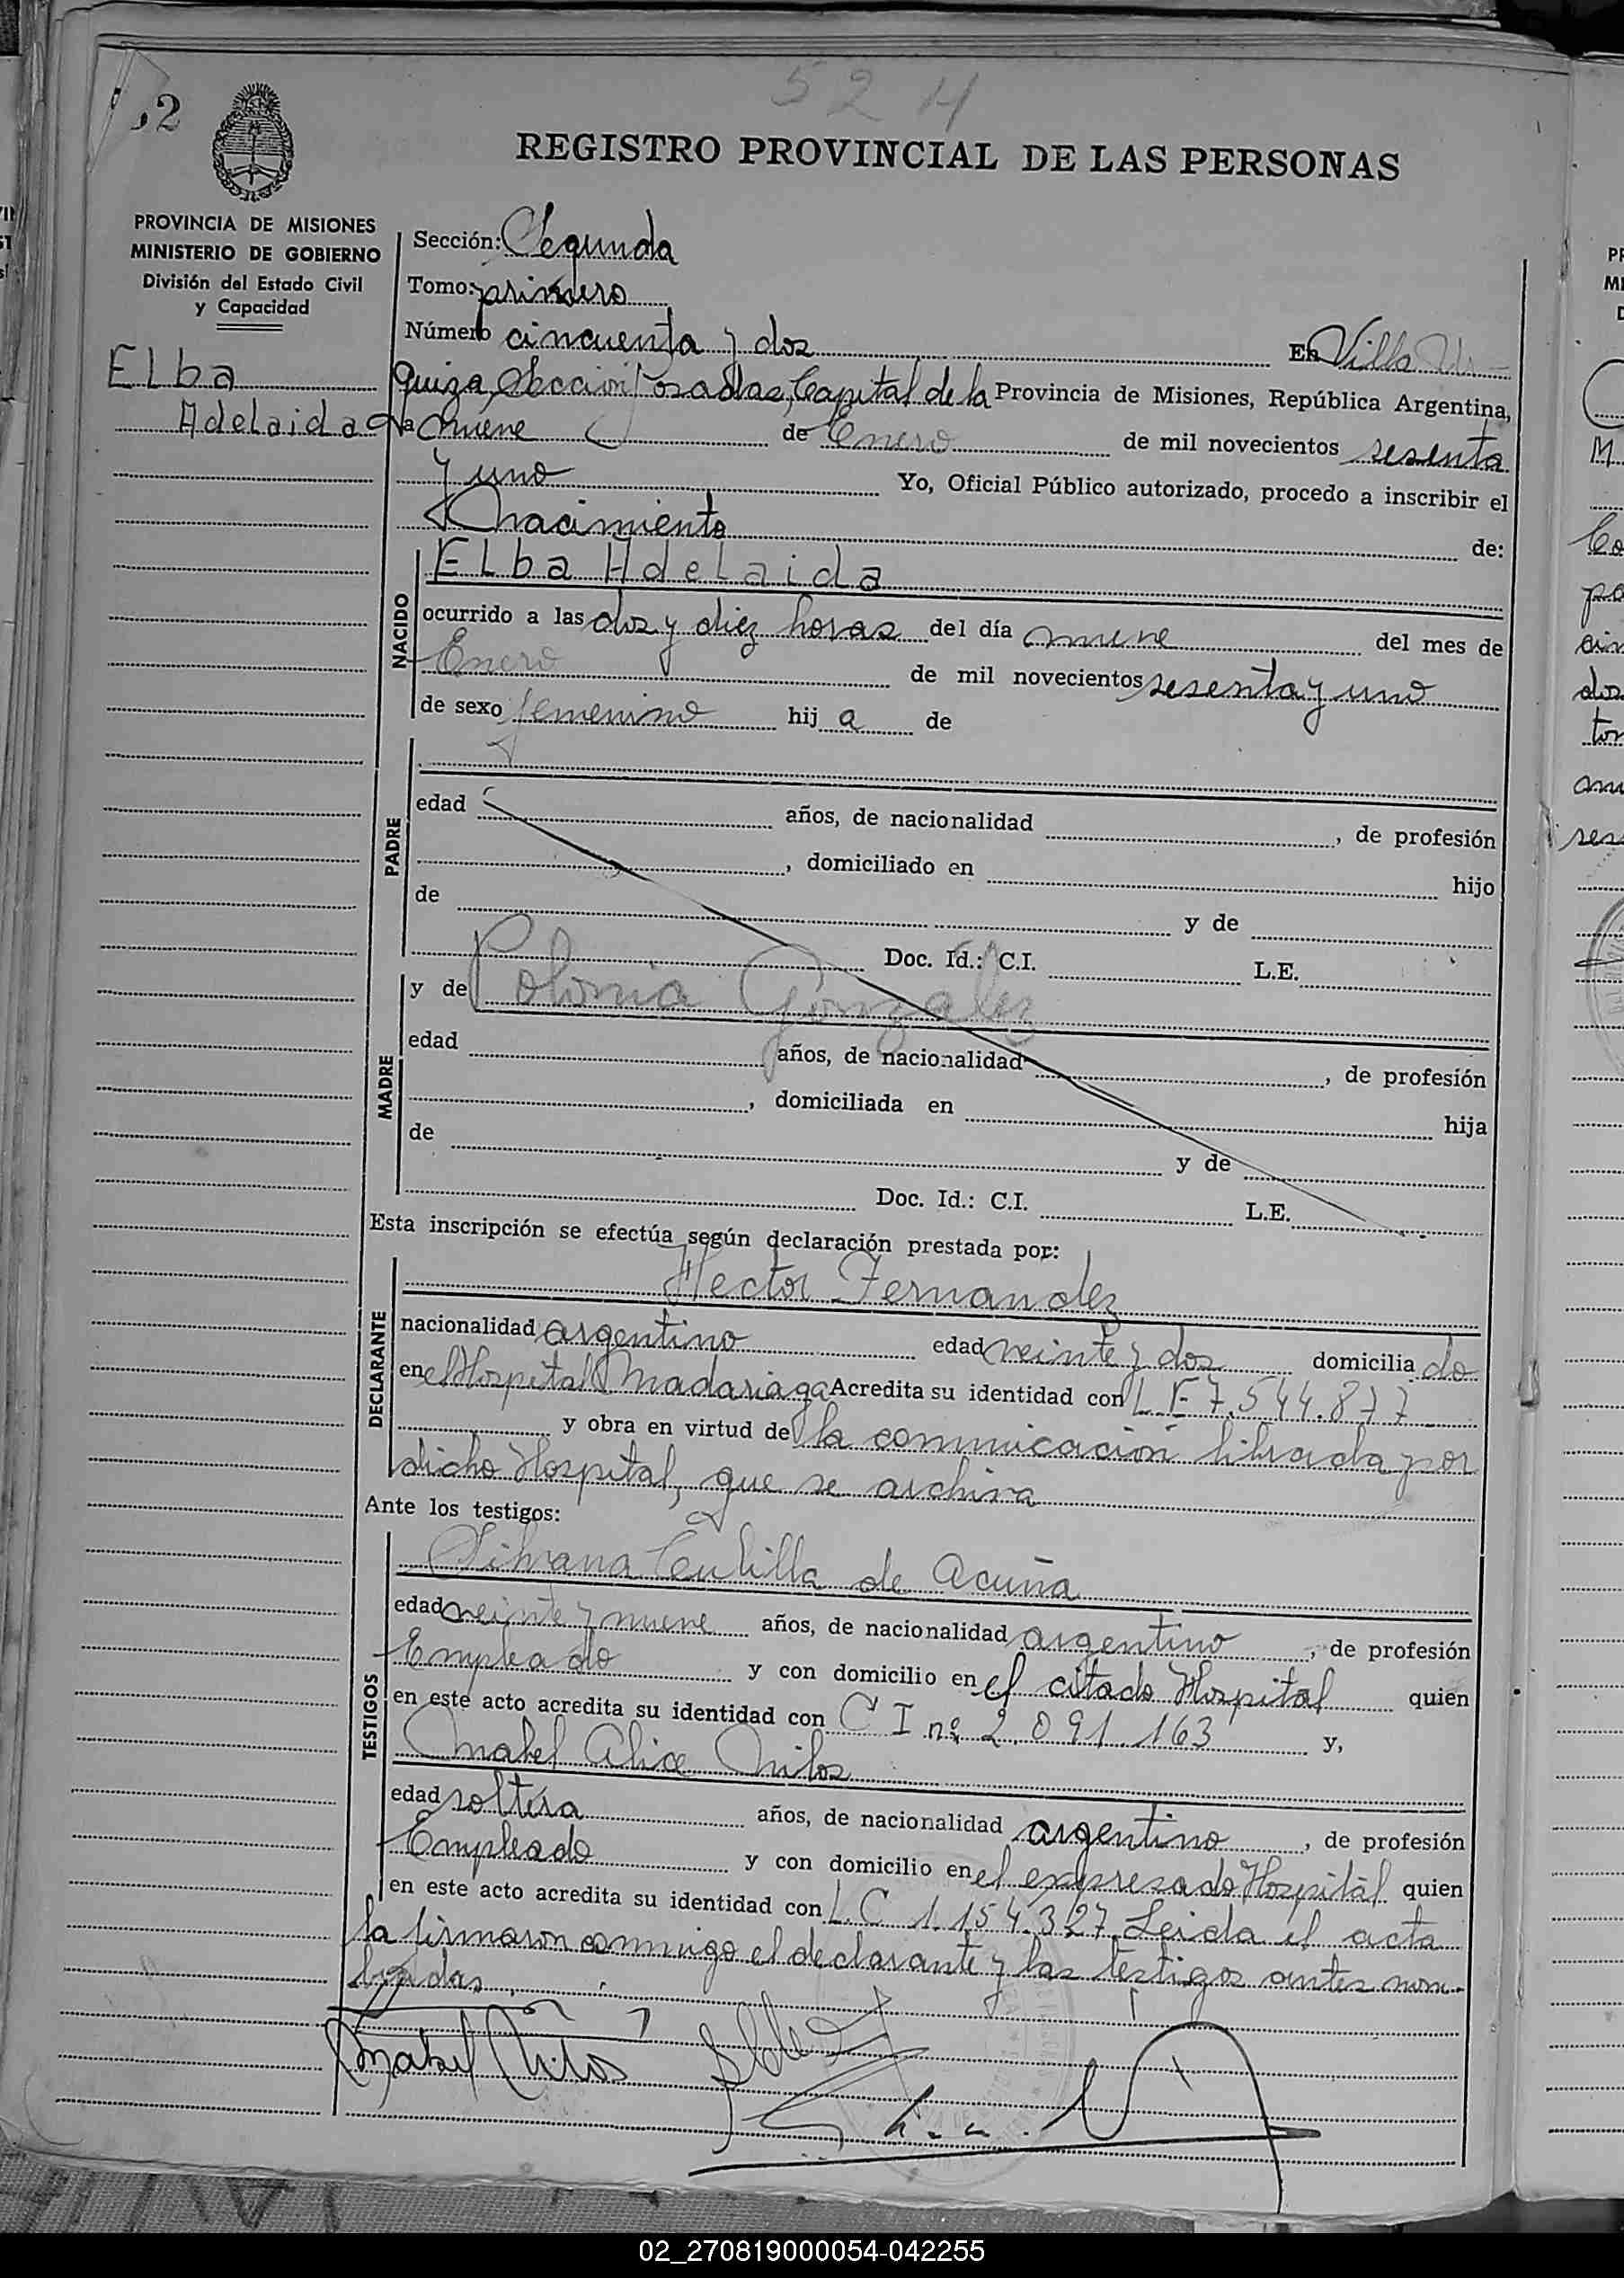 52 4
52
REGISTRO PROVINCIAL DE LAS PERSONAS
PROVINCIA DE MISIONES
MINISTERIO DE GOBIERNO
División del Estado Civil
y Capacidad
Elba
Adelaida
Sección: Segunda
Tomo: primero
Número cincuenta y dos En Villa Ur-
quiza, Sección Posadas, Capital de la Provincia de Misiones, República Argentina,
a nueve de Enero de mil novecientos sesenta
y uno Yo, Oficial Público autorizado, procedo a inscribir el
nacimiento de:
NACIDO
Elba Adelaida
ocurrido a las dos y diez horas del día nueve del mes de
Enero de mil novecientos sesenta y uno
de sexo femenino hij a de
PADRE
edad años, de nacionalidad , de profesión
, domiciliado en hijo
de y de
Doc. Id.: C.I. L.E.
MADRE
y de Polonia Gonzalez
edad años, de nacionalidad , de profesión
, domiciliada en hija
de y de
Doc. Id.: C.I. L.E.
Esta inscripción se efectúa según declaración prestada por:
DECLARANTE
Hector Fernandez
nacionalidad argentino edad veinte y dos domicilia do
en el Hospital Madariaga Acredita su identidad con L E 7.544.877
y obra en virtud de la comunicación librada por
dicho Hospital, que se archiva
Ante los testigos:
TESTIGOS
Silvana de Acuña
edad veinte y nueve años, de nacionalidad argentino , de profesión
Empleado y con domicilio en el citado Hospital quien
en este acto acredita su identidad con C I nº 2.091.163 y,
Mabel Alice
edad soltera años, de nacionalidad argentino , de profesión
Empleado y con domicilio en el expresado Hospital quien
en este acto acredita su identidad con L.C 1.154.327. Leida el acta
la firmaron conmigo el declarante y los testigos antes nom-
brados
Mabel
02_270819000054-042255